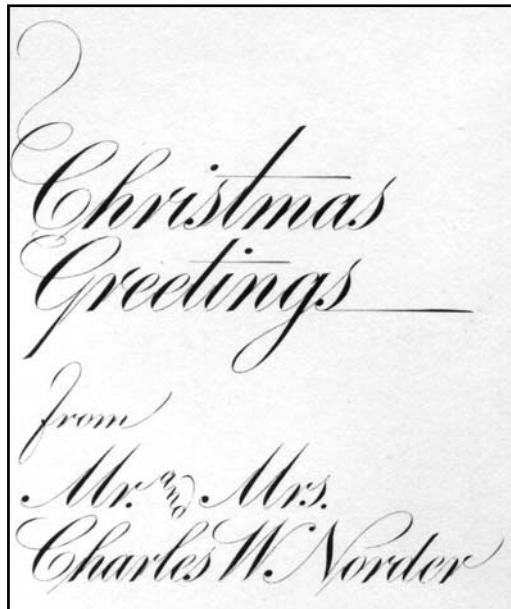 Christmas
Greetings
from
Mr. and Mrs.
Charles W. Norder